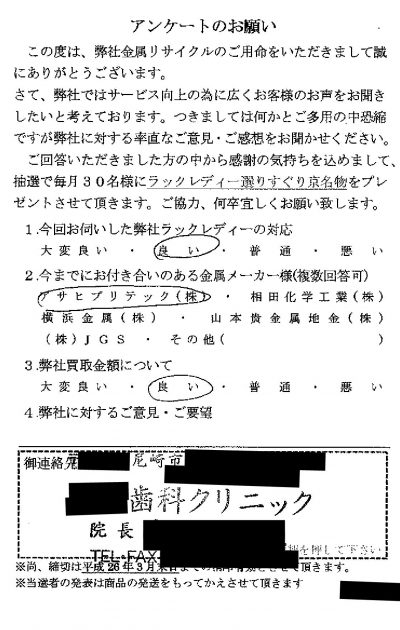 アンケートのお願い
この度は、弊社金属リサイクルのご用命をいただきまして誠
にありがとうございます。
さて、弊社ではサービス向上の為に広くお客様のお声をお聞き
したいと考えております。つきましては何かとご多用の中恐縮
ですが弊社に対する率直なご意見・ご感想をお聞かせください。
ご回答いただきました方の中から感謝の気持ちを込めまして、
抽選で毎月３０名様にラックレディー選りすぐり京名物をプレ
ゼントさせて頂きます。ご協力、何卒宜しくお願い致します。
１.今回お伺いした弊社ラックレディーの対応
大変良い ・ 良い ・ 普通 ・ 悪い
２.今までにお付き合いのある金属メーカー様(複数回答可)
アサヒプリテック(株) ・ 相田化学工業(株)
横浜金属(株) ・ 山本貴金属地金(株)
(株)JGS ・ その他( )
３.弊社買取金額について
大変良い ・ 良い ・ 普通 ・ 悪い
４.弊社に対するご意見・ご要望
御連絡先
尼崎市
歯科クリニック
院長
TEL・FAX
を押して下さい
※尚、締切は平成２６年３月末日までの消印有効とさせて頂きます。
※当選者の発表は商品の発送をもってかえさせて頂きます